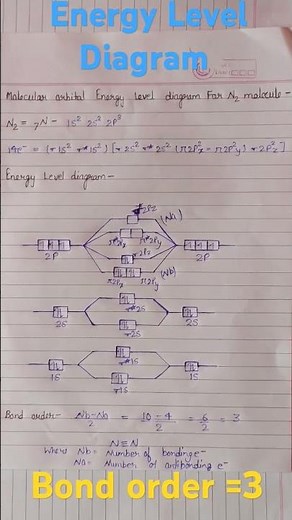 Energy Level
Diagram
Molecular orbital Energy level diagram For N₂ molecule-
N₂ = ₇N - 1S² 2S² 2P³
14e⁻ = [σ1S² σ*1S²] [σ2S² σ*2S² (π2P²x = π2P²y) σ2P²z]
Energy Level diagram-
σ*2Pz
(Na)
π*2Px π*2Py
2P 2P
σ2Pz
(Nb)
π2Px π2Py
σ*2S
2S 2S
σ2S
σ*1S
1S 1S
σ1S
Bond order- Nb-Na/2 = 10-4/2 = 6/2 = 3
N≡N
Where Nb= Number of bonding e⁻
Na= Number of antibonding e⁻
Bond order =3